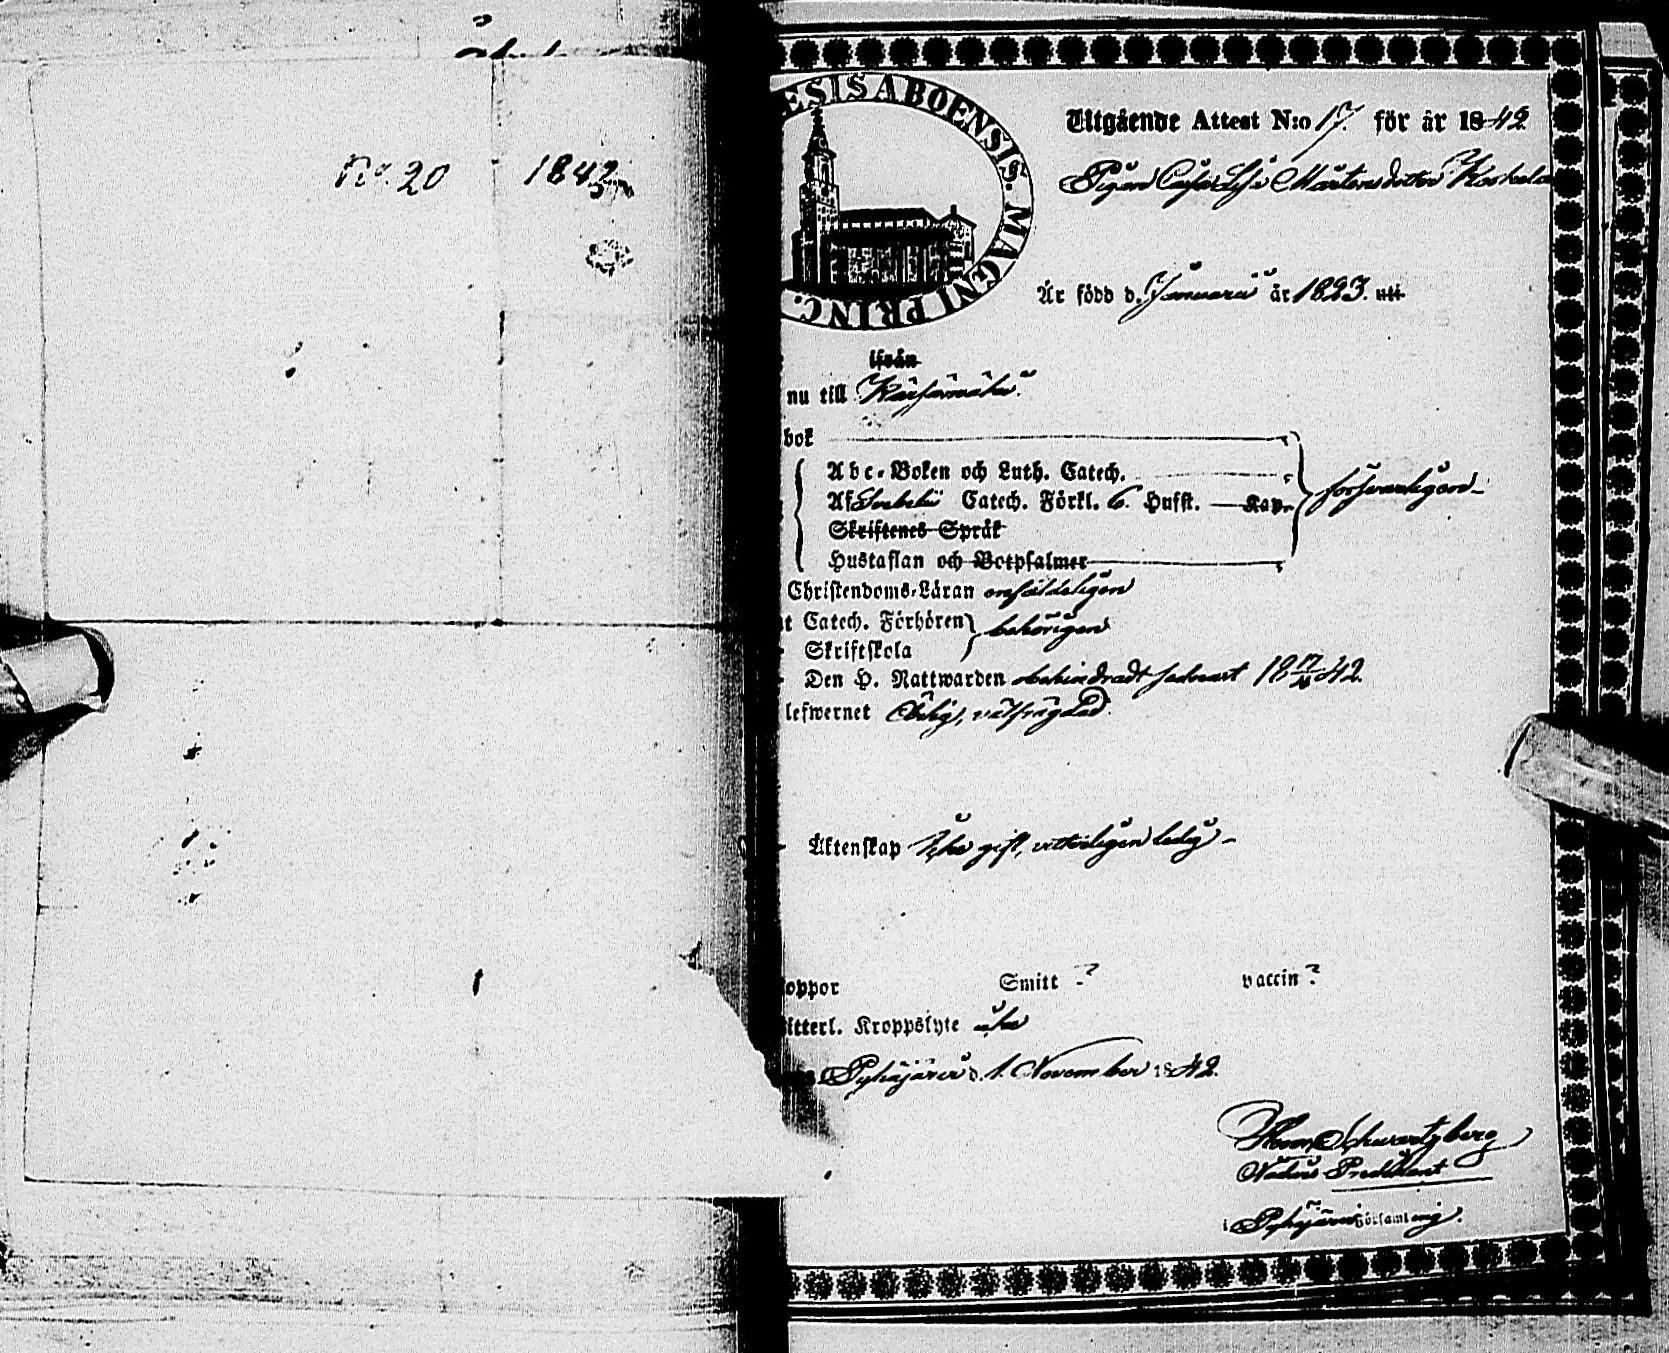 No. 20 1842
ESIS ABOENSIS. MAGNI PRINC.
Utgående Attest N:o 17. för år 1842
Pigan Cajsa Lisa Mårtensdotter Koskela
Är född d. Januarii år 1823. uti
ifrån
nu till Kärsämäki.
bok
Abc-Boken och Luth. Catech.
Af Svebelii Catech. Förkl. 6. Hufst. Kap. försvarligen
Skriftenes Språk
Hustaflan och Botpsalmer
Christendoms-Läran enfaldeligen
t Catech. Förhören
Skriftskola behörigen
Den H. Nattwarden obehindradt sednast 18 42.
lefwernet ärlig, välfrägdad
Äktenskap Icke gift, vitterligen ledig
oppor Smitt ? vaccin ?
itterl. Kroppslyte icke
Pyhäjärvi d. 1. November 1842.
Thom Schwartzberg
Nådårs Predikant
i Pyhäjärvi Församling.